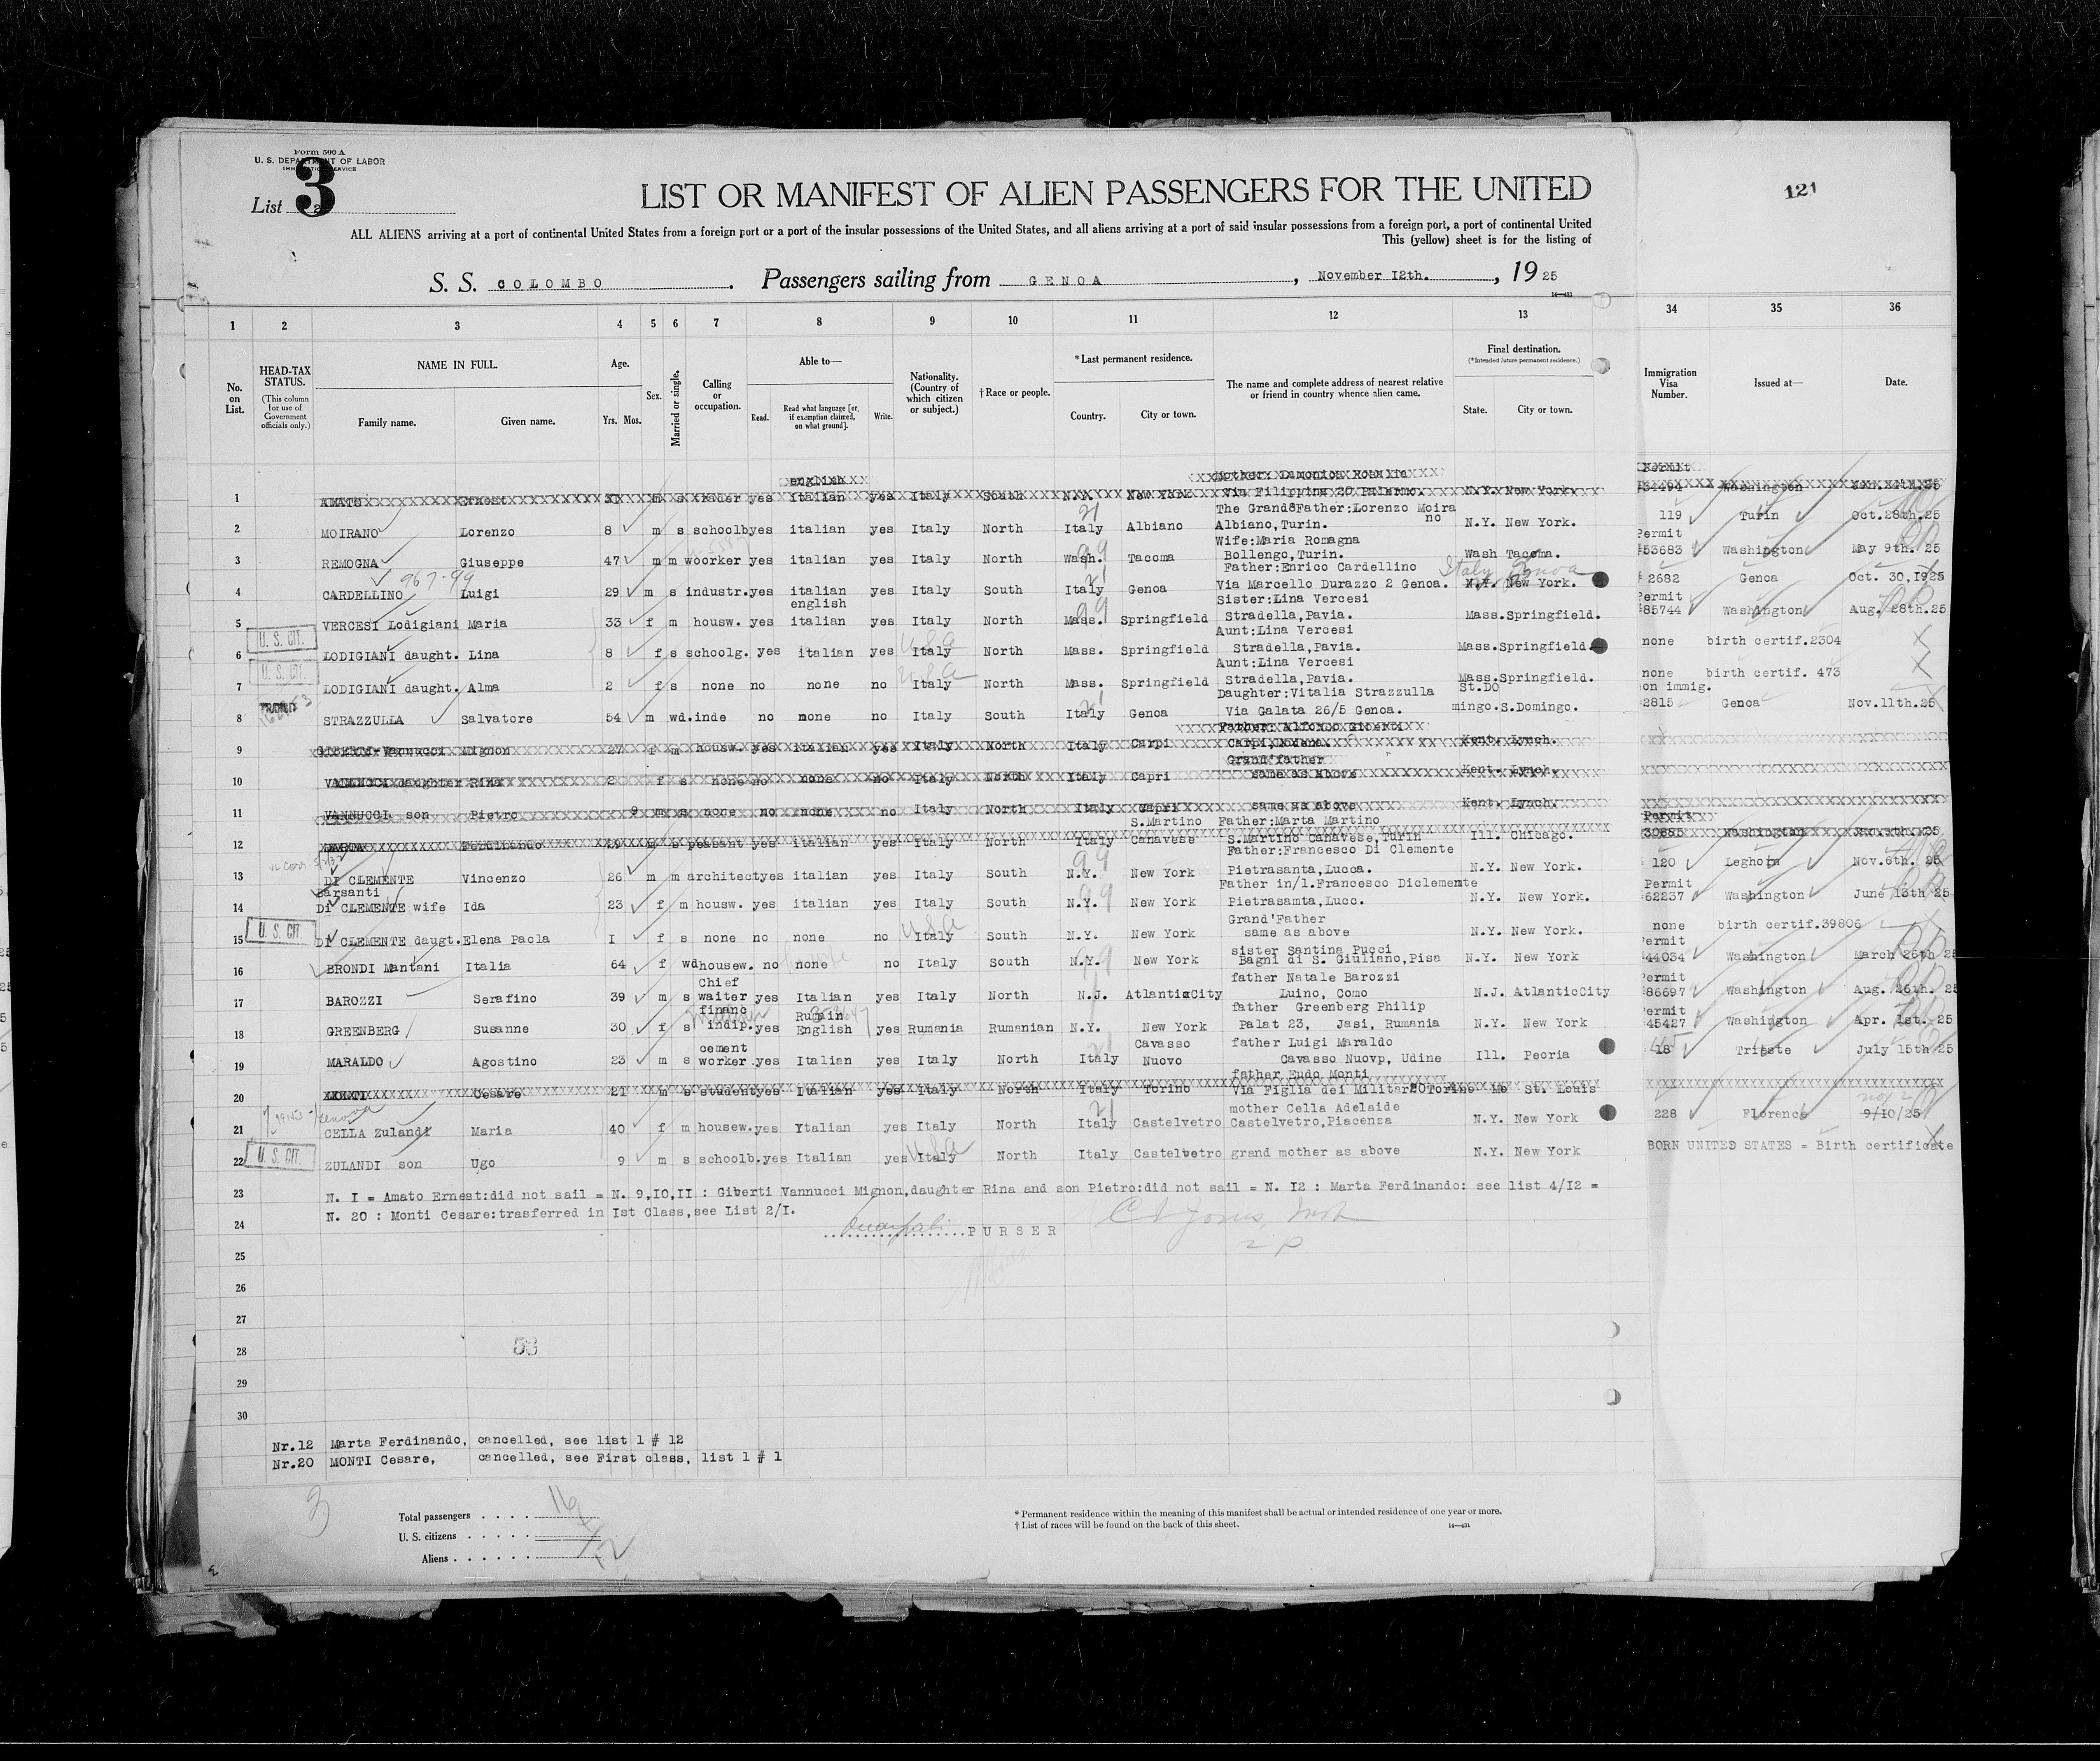 Form 500 A
U. S. DEPARTMENT OF LABOR
IMMIGRATION SERVICE
List 3
121
LIST OR MANIFEST OF ALIEN PASSENGERS FOR THE UNITED
ALL ALIENS arriving at a port of continental United States from a foreign port or a port of the insular possessions of the United States, and all aliens arriving at a port of said insular possessions from a foreign port, a port of continental United
This (yellow) sheet is for the listing of
S. S. COLOMBO. Passengers sailing from GENOA, November 12th., 1925
1 2 3 4 5 6 7 8 9 10 11 12 13 34 35 36
No. on List. HEAD-TAX STATUS. (This column for use of Government officials only.) NAME IN FULL. Family name. Given name. Age. Yrs. Mos. Sex. Married or single. Calling or occupation. Able to— Read. Read what language [or, if exemption claimed, on what ground]. Write. Nationality. (Country of which citizen or subject.) † Race or people. *Last permanent residence. Country. City or town. The name and complete address of nearest relative or friend in country whence alien came. Final destination. (*Intended future permanent residence.) State. City or town. Immigration Visa Number. Issued at— Date.
english
1 AMATO Ernest m s yes italian yes Italy South N.Y. New York Via Filippina 20 Palermo. N.Y. New York. Washington
The GrandsFather:Lorenzo Moira
2 MOIRANO Lorenzo 8 m s schoolb yes italian yes Italy North Italy Albiano Albiano,Turin. no N.Y. New York. 119 Turin Oct.28th.25
Wife:Maria Romagna Permit
3 REMOGNA Giuseppe 47 m m woorker yes italian yes Italy North Wash. Tacoma Bollengo,Turin. Wash Tacoma. 53683 Washington May 9th. 25
967-99 Father:Enrico Cardellino Italy Genoa
4 CARDELLINO Luigi 29 m s industr. yes italian yes Italy South Italy Genoa Via Marcello Durazzo 2 Genoa. N.Y. New York. 2682 Genoa Oct. 30,1925
english Sister:Lina Vercesi Permit
5 VERCESI Lodigiani Maria 33 f m housw. yes italian yes Italy North Mass. Springfield Stradella,Pavia. Mass.Springfield. 85744 Washington Aug. 28th.25
U. S. CIT. Aunt:Lina Vercesi
6 LODIGIANI daught. Lina 8 f s schoolg. yes italian yes Italy North Mass. Springfield Stradella,Pavia. Mass.Springfield. none birth certif.2304
U. S. CIT. Aunt:Lina Vercesi
7 LODIGIANI daught. Alma 2 f s none no none no Italy North Mass. Springfield Stradella,Pavia. Mass.Springfield. none birth certif. 473
Daughter:Vitalia Strazzulla St.Do non immig.
8 STRAZZULLA Salvatore 54 m wd. inde no none no Italy South Italy Genoa Via Galata 26/5 Genoa. mingo.S.Domingo. 2815 Genoa Nov.11th.25
Father: Alfonso Giberti
9 GIBERTI Vannucci Mignon 27 f m housw. yes italian yes Italy North Italy Carpi Carpi,Modena. Kent. Lynch.
Grand'father
10 VANNUCCI daughter Rina 2 f s none no none no Italy North Italy Capri same as above Kent. Lynch.
11 VANNUCCI son Pietro 9 m s none no none no Italy North Italy Capri same as above Kent. Lynch.
S.Martino Father:Marta Martino Permit
12 MARTA Ferdinando m s peasant yes italian yes Italy North Italy Canavese S.Martino Canavese,Turin Ill. Chicago. Washington
Father:Francesco Di Clemente
13 DI CLEMENTE Vincenzo 26 m m architect yes italian yes Italy South N.Y. New York Pietrasanta,Lucca. N.Y. New York. 120 Leghorn Nov.6th. 25
Barsanti Father in/l.Francesco Diclemente Permit
14 Di CLEMENTE wife Ida 23 f m housw. yes italian yes Italy South N.Y. New York Pietrasamta,Lucc. N.Y. New York. 62237 Washington June 13th 25
U. S. CIT. Grand'Father
15 DI CLEMENTE daugt.Elena Paola I f s none no none no Italy South N.Y. New York same as above N.Y. New York. none birth certif.39806
sister Santina Pucci Permit
16 BRONDI Mantani Italia 64 f wd housew. no none no Italy South N.Y. New York Bagni di S. Giuliano,Pisa N.Y. New York 44034 Washington March 26th 25
Chief father Natale Barozzi Permit
17 BAROZZI Serafino 39 m s waiter yes Italian yes Italy North N.J. AtlanticCity Luino, Como N.J. AtlanticCity 86697 Washington Aug. 26th. 25
financ Rumain father Greenberg Philip Permit
18 GREENBERG Susanne 30 f s indip. yes English yes Rumania Rumanian N.Y. New York Palat 23, Jasi, Rumania N.Y. New York 45427 Washington Apr. 1st. 25
cement Cavasso father Luigi Maraldo
19 MARALDO Agostino 23 m s worker yes Italian yes Italy North Italy Nuovo Cavasso Nuovp, Udine Ill. Peoria 18 Trieste July 15th 25
father Eudo Monti
20 MONTI Cesare 21 m s student yes Italian yes Italy North Italy Torino Via Figlia dei Militar 20 Torino Mo St. Louis
mother Cella Adelaide
21 CELLA Zulandi Maria 40 f m housew. yes Ytalian yes Italy North Italy Castelvetro Castelvetro,Piacenza N.Y. New York 228 Florence 9/10/25
22 U. S. CIT. ZULANDI son Ugo 9 m s schoolb. yes Italian yes Italy North Italy Castelvetro grand mother as above N.Y. New York BORN UNITED STATES = Birth certificate
23 N. I = Amato Ernest:did not sail = N. 9,IO,II : Giberti Vannucci Mignon,daughter Rina and son Pietro:did not sail = N. I2 : Marta Ferdinando: see list 4/I2 =
24 N. 20 : Monti Cesare:trasferred in Ist Class,see List 2/I.
PURSER
25
26
27
28 53
29
30
Nr.12 Marta Ferdinando, cancelled, see list 1 # 12
Nr.20 MONTI Cesare, cancelled, see First class, list 1 # 1
3
Total passengers 16
U. S. citizens
Aliens 12
* Permanent residence within the meaning of this manifest shall be actual or intended residence of one year or more.
† List of races will be found on the back of this sheet.
14—431